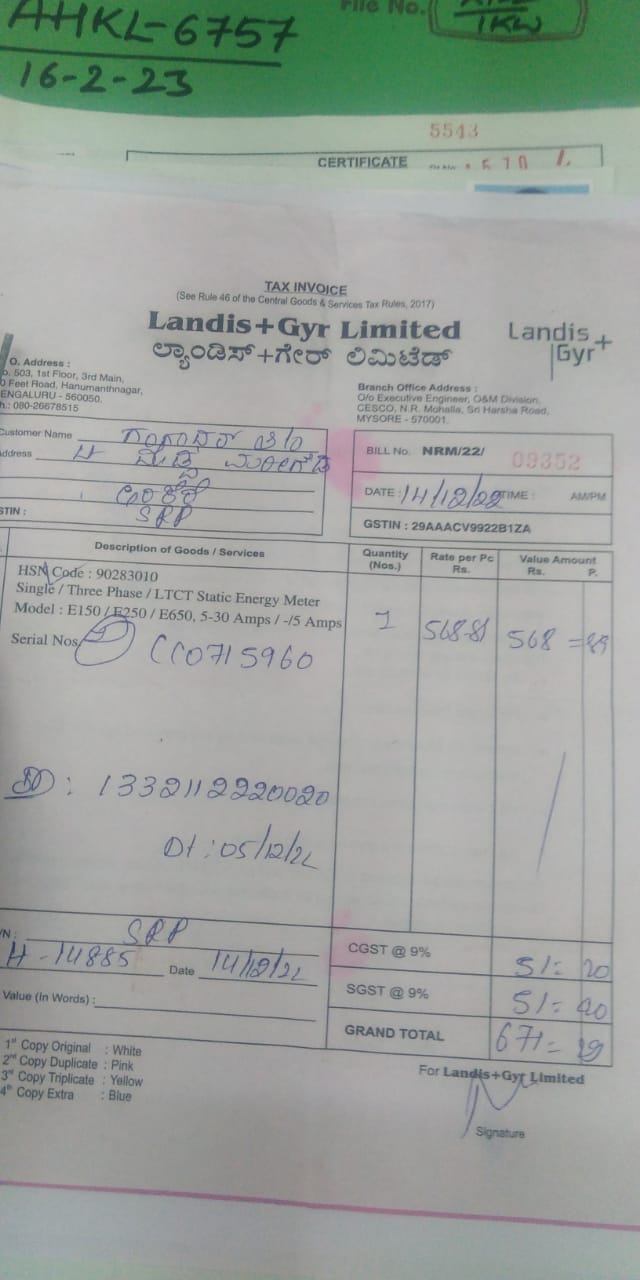 AHKL-6757
File No.
1KW
16-2-23
5543
CERTIFICATE
TAX INVOICE
(See Rule 46 of the Central Goods & Services Tax Rules, 2017)
Landis+Gyr Limited
ಲ್ಯಾಂಡಿಸ್+ಗೇರ್ ಲಿಮಿಟೆಡ್
Landis+
Gyr
O. Address :
503, 1st Floor, 3rd Main,
Feet Road, Hanumanthnagar,
ENGALURU - 560050.
080-26678515
Branch Office Address :
O/o Executive Engineer, O&M Division,
CESCO, N.R. Mohalla, Sri Harsha Road,
MYSORE - 570001.
Customer Name
Address
SRP
STIN :
BILL No. NRM/22/ 09352
DATE : 14/12/22 TIME : AM/PM
GSTIN : 29AAACV9922B1ZA
Description of Goods / Services
Quantity (Nos.)
Rate per Pc Rs.
Value Amount Rs. P.
HSN Code : 90283010
Single / Three Phase / LTCT Static Energy Meter
Model : E150 / E250 / E650, 5-30 Amps / -/5 Amps
1 568-81 568 =
Serial Nos.
CC0715960
DD : 1332112220020
Dt : 05/12/22
SRP
H-14885 Date 14/12/22
Value (In Words) :
CGST @ 9% 51=20
SGST @ 9% 51=20
GRAND TOTAL 671=
1st Copy Original : White
2nd Copy Duplicate : Pink
3rd Copy Triplicate : Yellow
4th Copy Extra : Blue
For Landis+Gyr Limited
Signature